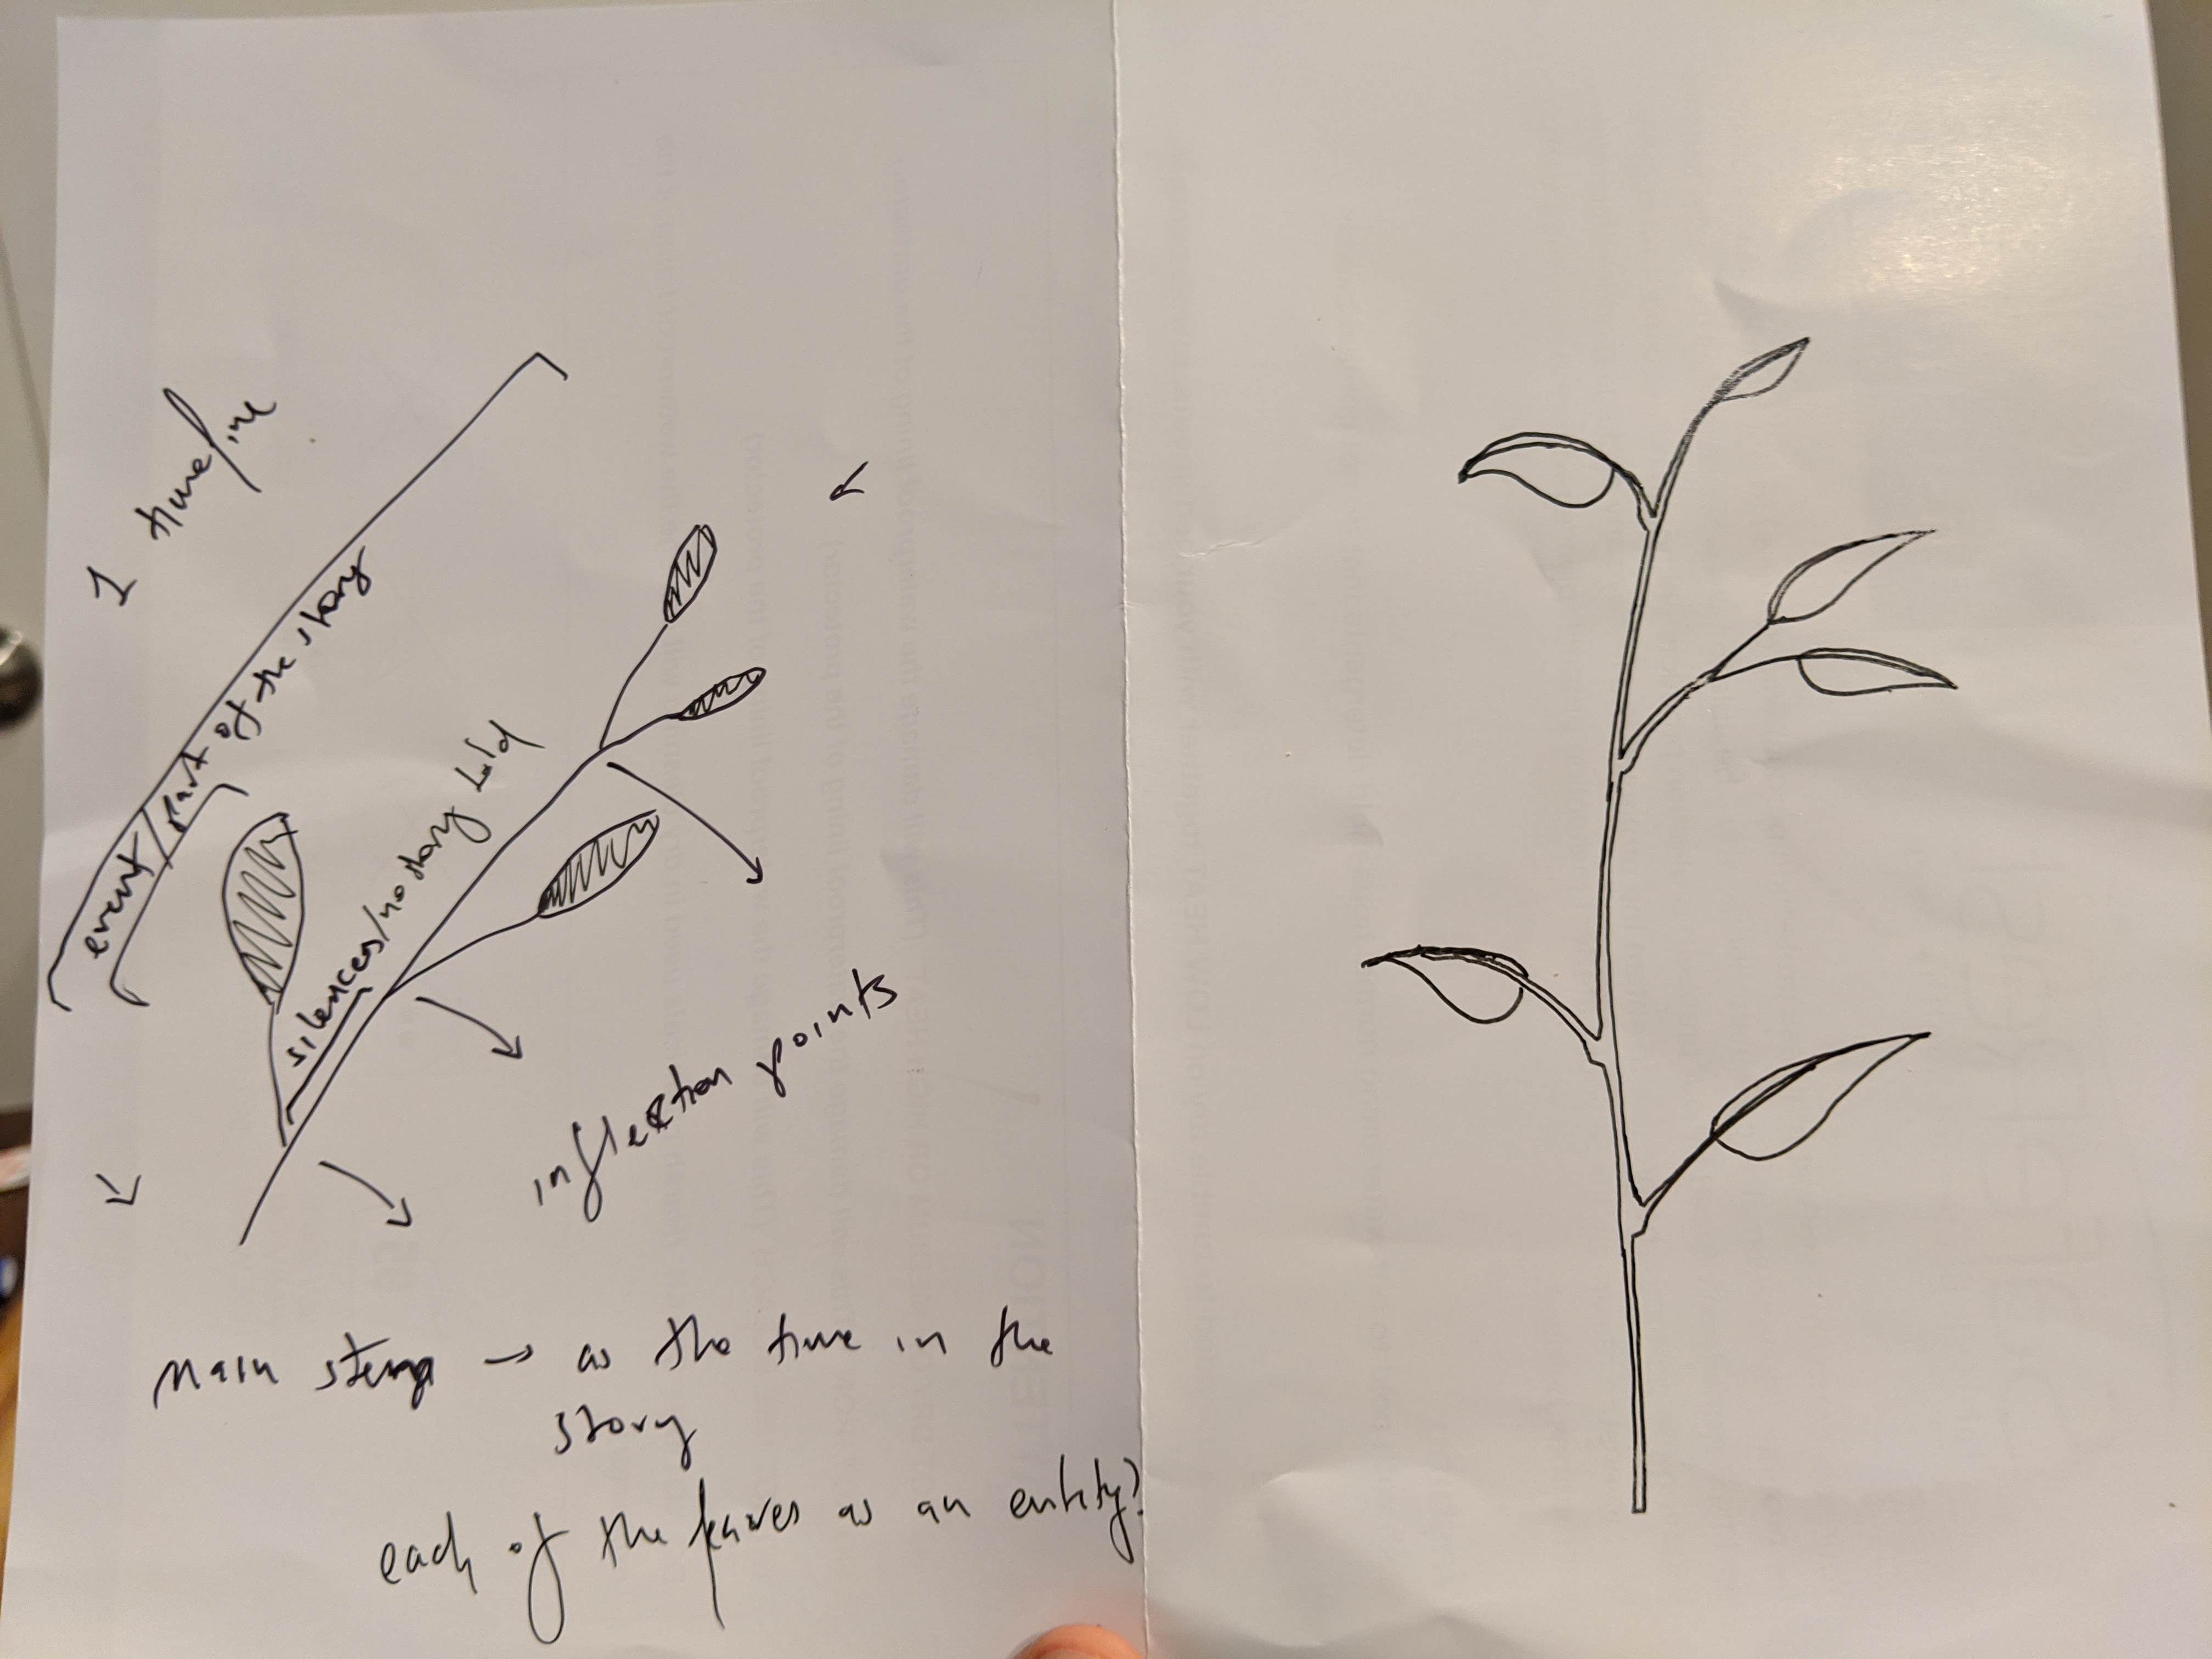 1 timeline
event/part of the story
silences/no story told
inflection points
main stem → as the time in the
story
each of the leaves as an entity?